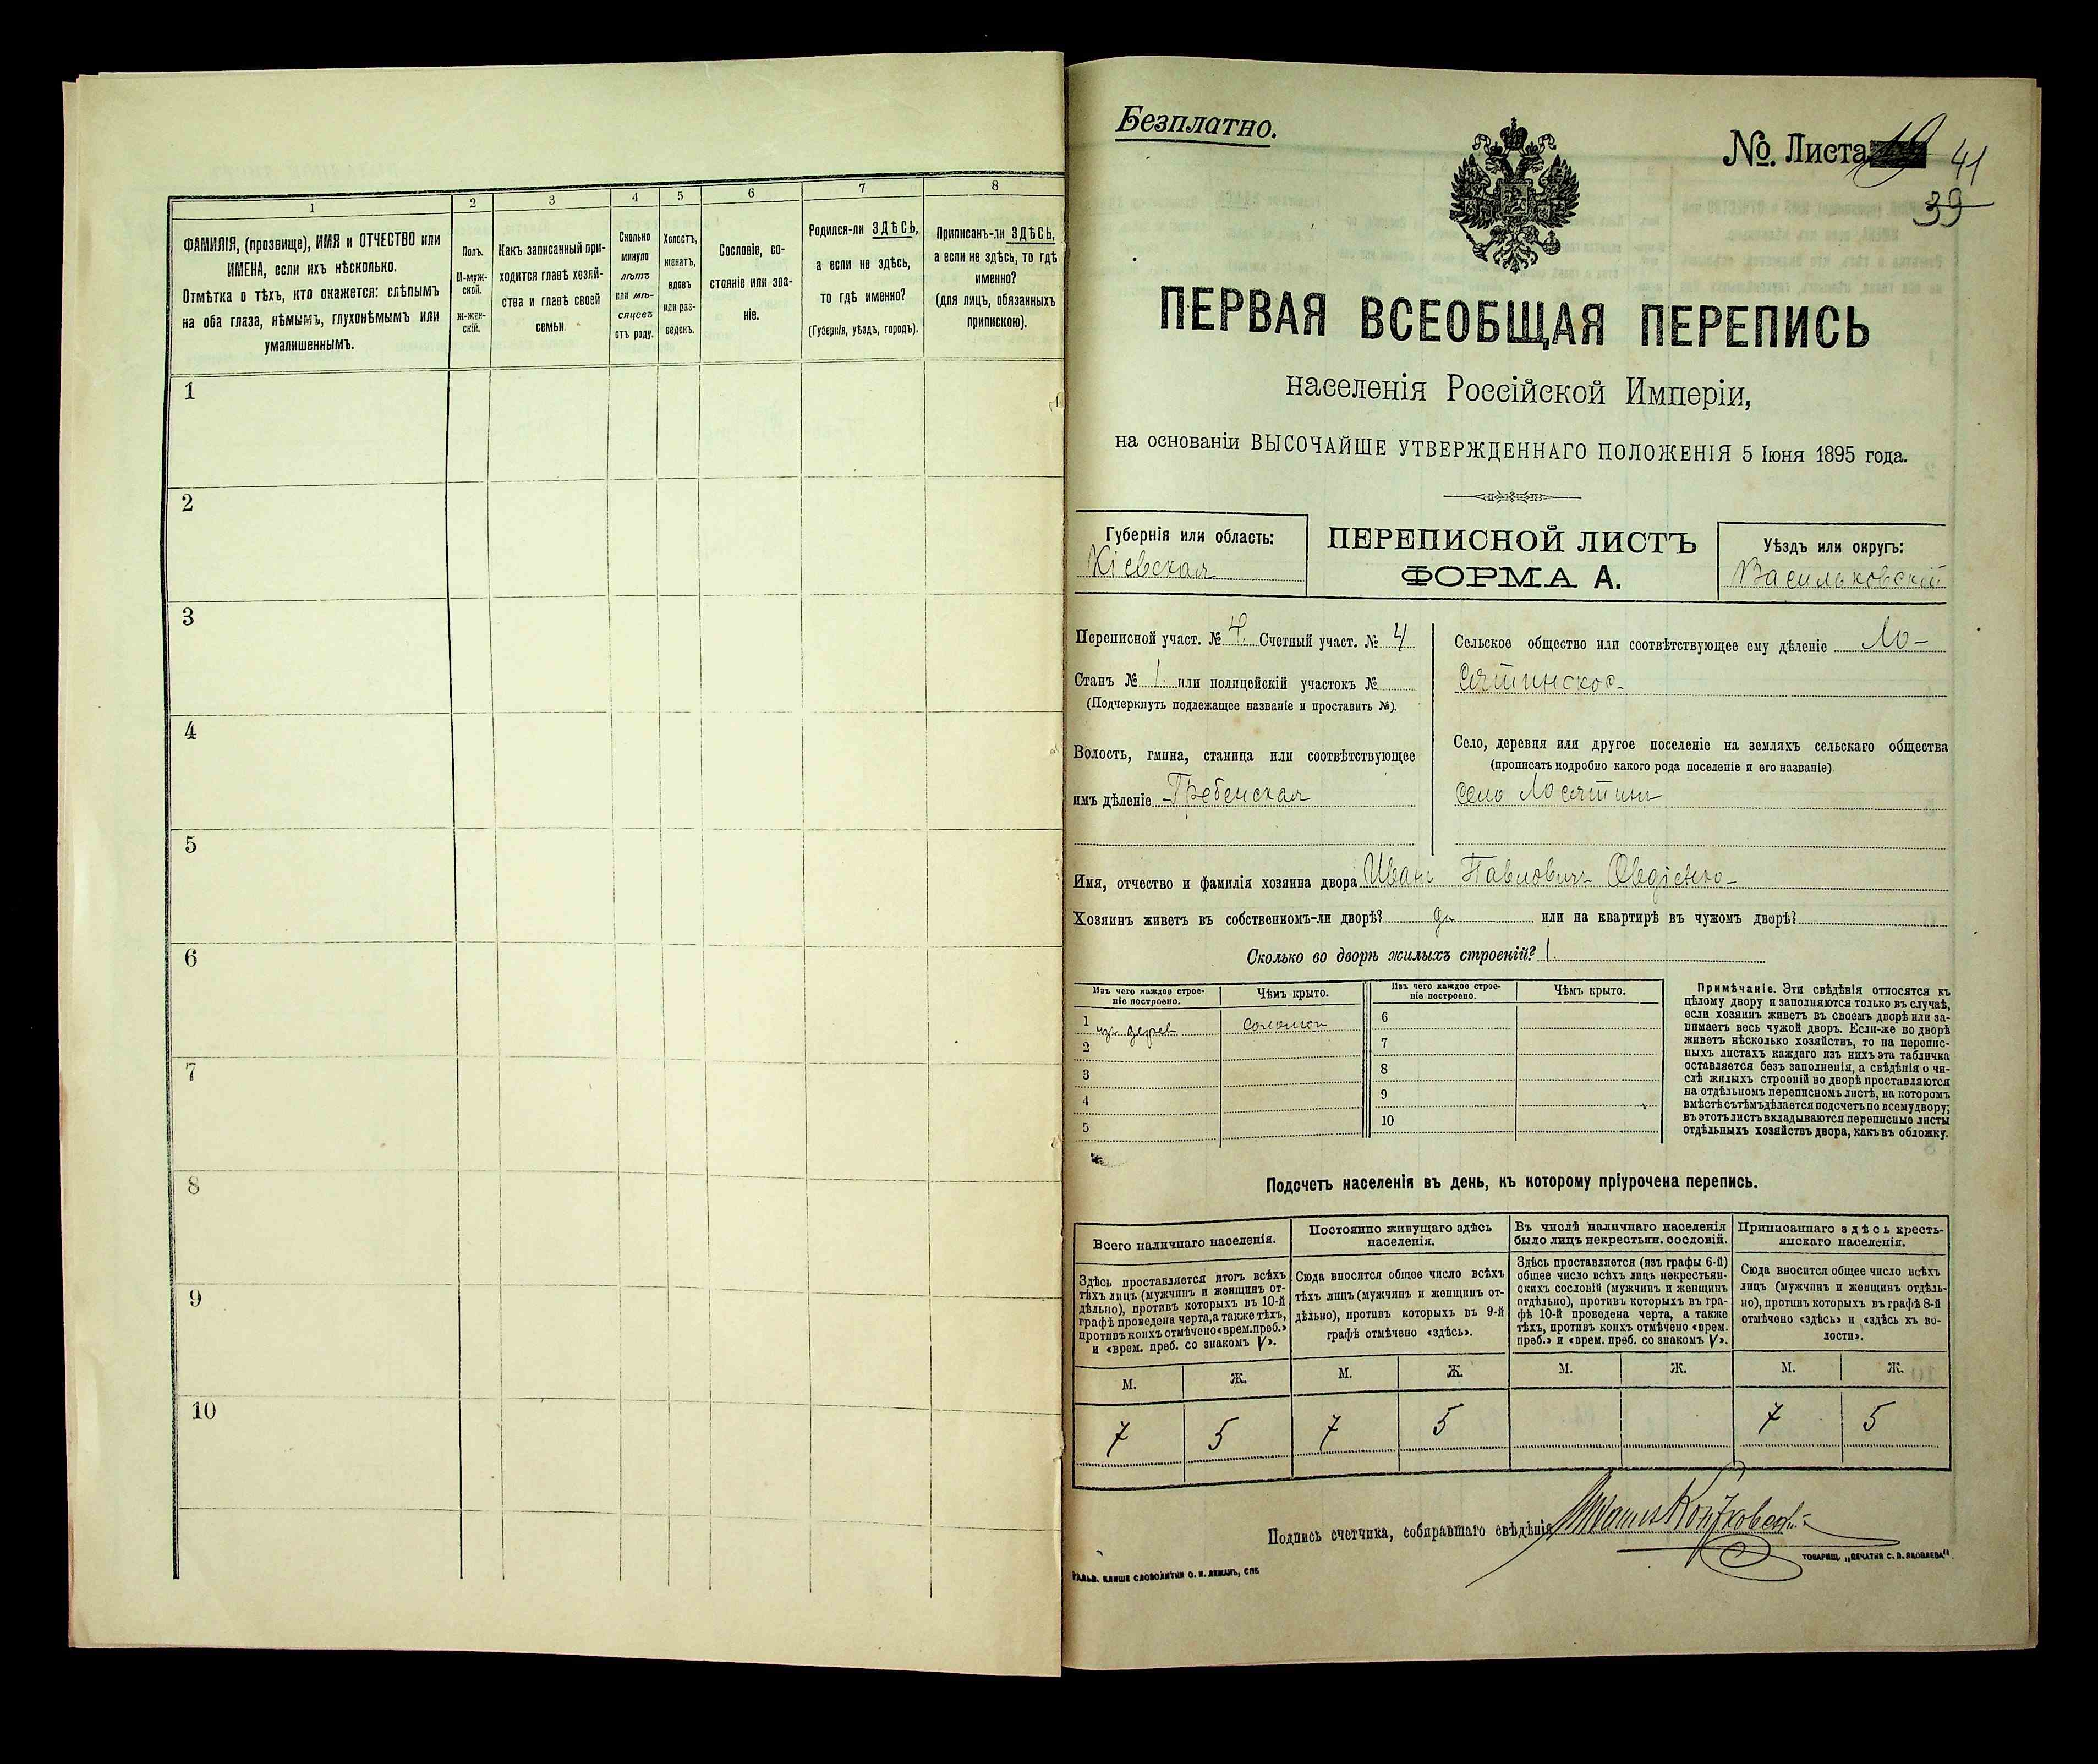 1
2
3
4
5
6
7
8
ФАМИЛІЯ, (прозвище), ИМЯ и ОТЧЕСТВО или
ИМЕНА, если ихъ нѣсколько.
Отмѣтка о тѣхъ, кто окажется: слѣпымъ
на оба глаза, нѣмымъ, глухонѣмымъ или
умалишеннымъ.
Полъ.
М-муж-
ской.
Ж-жен-
скій.
Какъ записанный при-
ходится главѣ хозяй-
ства и главѣ своей
семьи
Сколько
минуло
лѣтъ
или мѣ-
сяцевъ
отъ роду.
Холостъ,
женатъ,
вдовъ
или раз-
веденъ.
Сословіе, со-
стояніе или зва-
ніе.
Родился-ли ЗДѢСЬ,
а если не здѣсь,
то гдѣ именно?
(Губернія, уѣздъ, городъ).
Приписанъ-ли ЗДѢСЬ,
а если не здѣсь, то гдѣ
именно?
(для лицъ, обязанныхъ
припискою).
1
2
3
4
5
6
7
8
9
10
Безплатно.
№. Листа 41
39
ПЕРВАЯ ВСЕОБЩАЯ ПЕРЕПИСЬ
населенія Россійской Имперіи,
на основаніи ВЫСОЧАЙШЕ УТВЕРЖДЕННАГО ПОЛОЖЕНІЯ 5 Іюня 1895 года.
Губернія или область:
Кіевская
ПЕРЕПИСНОЙ ЛИСТЪ
ФОРМА А.
Уѣздъ или округъ:
Васильковскій
Переписной участ. № 4. Счетный участ. № 4
Станъ № 1. или полицейскій участокъ №
(Подчеркнуть подлежащее названіе и проставить №).
Волость, гмина, станица или соотвѣтствующее
имъ дѣленіе Гребенская
Сельское общество или соотвѣтствующее ему дѣленіе Ло-
сятинское
Село, деревня или другое поселеніе на земляхъ сельскаго общества
(прописать подробно какого рода поселеніе и его названіе)
село Лосятин
Имя, отчество и фамилія хозяина двора Иван Павлович Овдіенко
Хозяинъ живетъ въ собственномъ-ли дворѣ? да или на квартирѣ въ чужомъ дворѣ?
Сколько во дворѣ жилыхъ строеній? 1.
Изъ чего каждое строе-
ніе построено.
Чѣмъ крыто.
Изъ чего каждое строе-
ніе построено.
Чѣмъ крыто.
1 изъ дерев соломой
2
3
4
5
6
7
8
9
10
Примѣчаніе. Эти свѣдѣнія относятся къ
цѣлому двору и заполняются только въ случаѣ,
если хозяинъ живетъ въ своемъ дворѣ или за-
нимаетъ весь чужой дворъ. Если-же во дворѣ
живетъ нѣсколько хозяйствъ, то на перепис-
ныхъ листахъ каждаго изъ нихъ эта табличка
оставляется безъ заполненія, а свѣдѣнія о чи-
слѣ жилыхъ строеній во дворѣ проставляются
на отдѣльномъ переписномъ листѣ, на которомъ
вмѣстѣ съ тѣмъ дѣлается подсчетъ по всему двору;
въ этотъ листъ вкладываются переписные листы
отдѣльныхъ хозяйствъ двора, какъ въ обложку.
Подсчетъ населенія въ день, къ которому пріурочена перепись.
Всего наличнаго населенія.
Здѣсь проставляется итогъ всѣхъ
тѣхъ лицъ (мужчинъ и женщинъ от-
дѣльно), противъ которыхъ въ 10-й
графѣ проведена черта, а также тѣхъ,
противъ коихъ отмѣчено «врем. преб.»
и «врем. преб. со знакомъ V».
Постоянно живущаго здѣсь
населенія.
Сюда вносится общее число всѣхъ
тѣхъ лицъ (мужчинъ и женщинъ от-
дѣльно), противъ которыхъ въ 9-й
графѣ отмѣчено «здѣсь».
Въ числѣ наличнаго населенія
было лицъ некрестьян. сословій.
Здѣсь проставляется (изъ графы 6-й)
общее число всѣхъ лицъ некрестьян-
скихъ сословій (мужчинъ и женщинъ
отдѣльно), противъ которыхъ въ гра-
фѣ 10-й проведена черта, а также
тѣхъ, противъ коихъ отмѣчено «врем.
преб.» и «врем. преб. со знакомъ V».
Приписаннаго здѣсь кресть-
янскаго населенія.
Сюда вносится общее число всѣхъ
лицъ (мужчинъ и женщинъ отдѣль-
но), противъ которыхъ въ графѣ 8-й
отмѣчено «здѣсь» и «здѣсь къ во-
лости».
М. Ж. М. Ж. М. Ж. М. Ж.
7 5 7 5 7 5
Подпись счетчика, собиравшаго свѣдѣнія
ГАЛЬВ. КЛИШЕ СЛОВОЛИТНИ О. И. ЛЕМАНЪ, СПБ
ТОВАРИЩ. „ПЕЧАТНЯ С. П. ЯКОВЛЕВА".